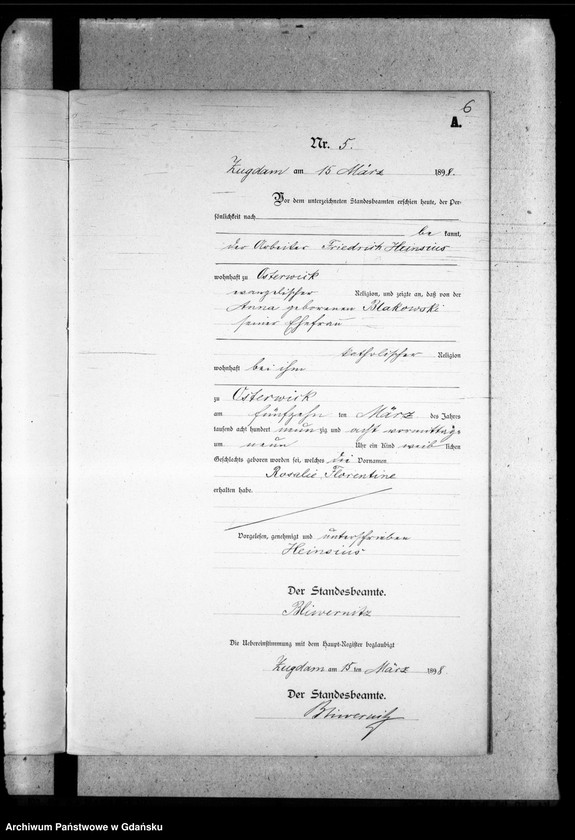 6
A.
Nr. 5.
Zugdam am 15 März 1898.
Vor dem unterzeichneten Standesbeamten erschien heute, der Per-
sönlichkeit nach
be kannt,
der Arbeiter Friedrich Heinsius
wohnhaft zu Osterwick
evangelischer Religion, und zeigte an, daß von der
Anna geborenen Blakowski
seiner Ehefrau
katholischer Religion
wohnhaft bei ihm
zu Osterwick
am fünfzehn ten März des Jahres
tausend acht hundert neun zig und acht vormittags
um neun Uhr ein Kind weib lichen
Geschlechts geboren worden sei, welches die Vornamen
Rosalie Florentine
erhalten habe.
Vorgelesen, genehmigt und unterschrieben
Heinsius
Der Standesbeamte.
Bliwernitz
Die Uebereinstimmung mit dem Haupt-Register beglaubigt
Zugdam am 15 ten März 1898
Der Standesbeamte.
Bliwernitz
Archiwum Państwowe w Gdańsku